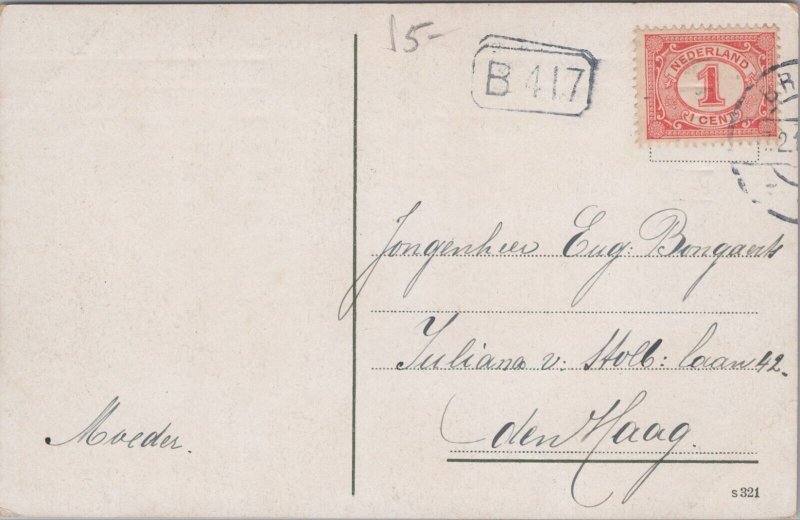 15-
B 417
NEDERLAND
1
1 CENT
Jongenheer Eug. Bongaerts
Juliana v. Stolb: laan 42.
den Haag.
Moeder.
s 321